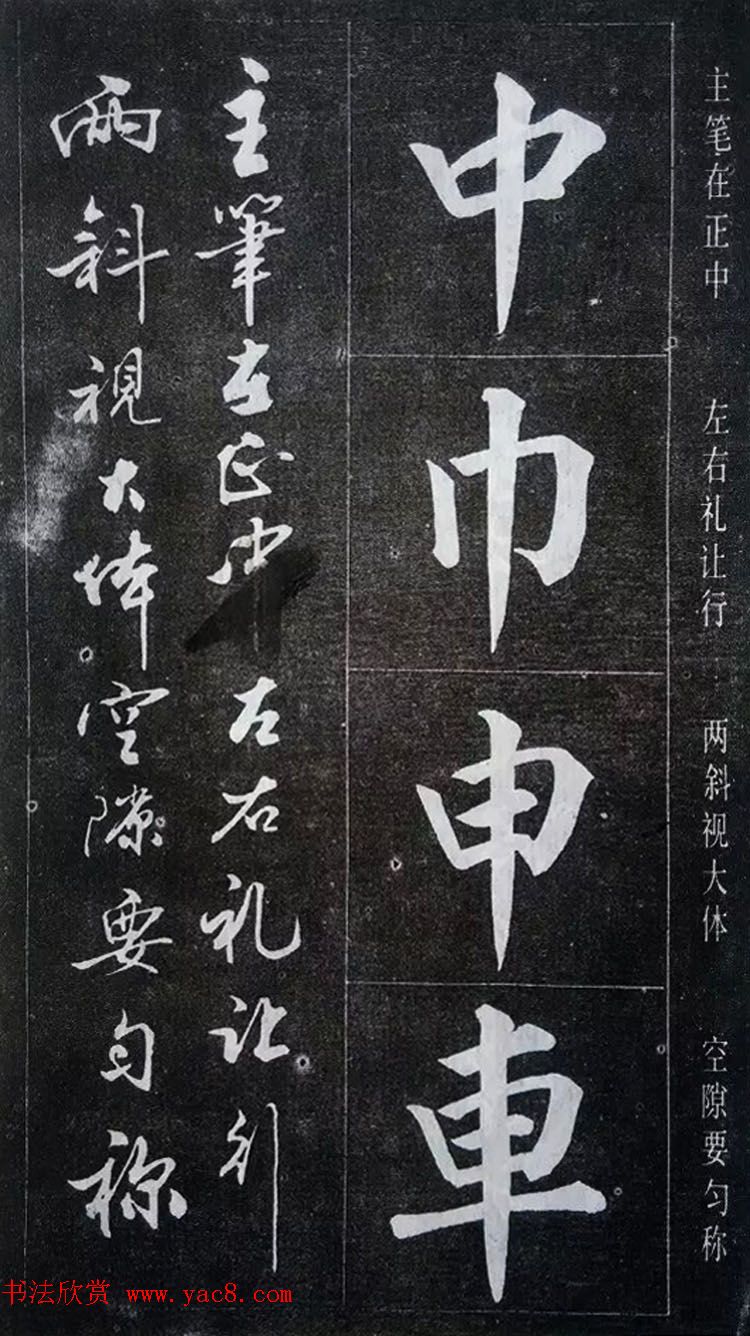 主笔在正中 左右礼让行 两斜视大体 空隙要匀称
中
巾
申
車
主筆在正中左右礼让行
兩斜視大体空隙要匀称
书法欣赏 www.yac8.com